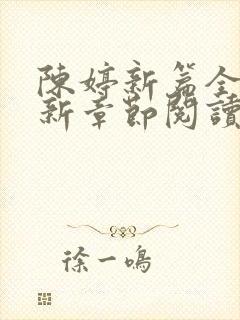 陳婷新篇全
新章節閱讀
徐一鳴